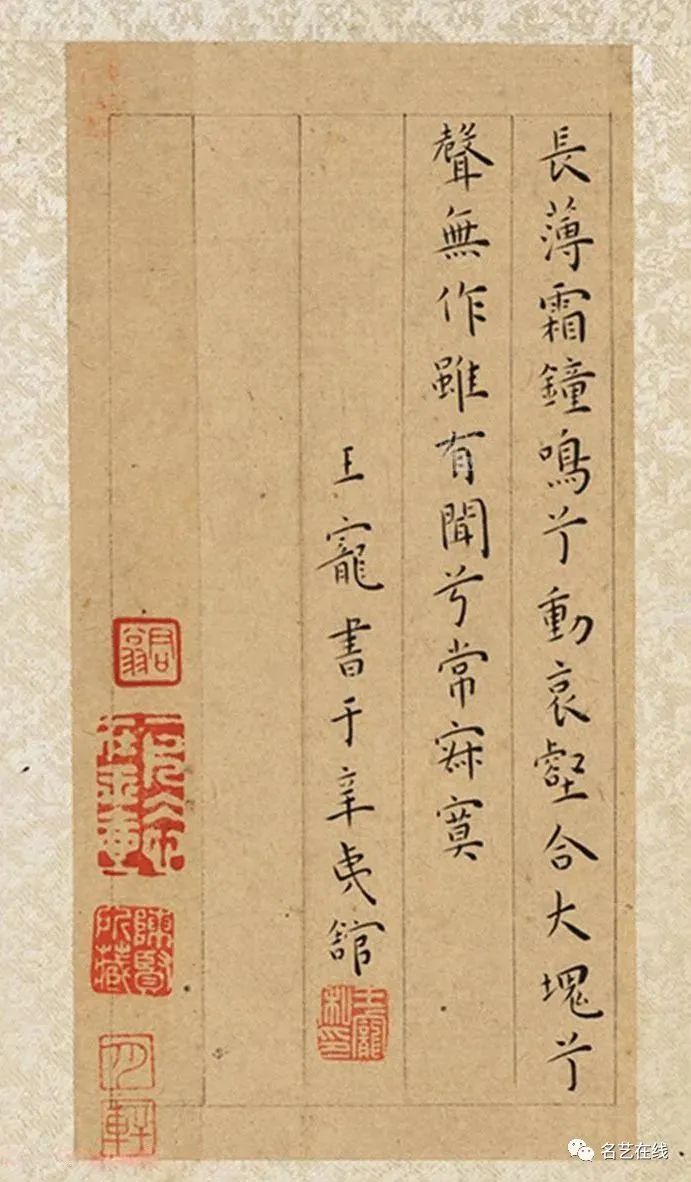 長薄霜鐘鳴兮動哀壑合大塊兮
聲無作雖有聞兮常寂寞
王寵書于辛夷館
王寵私印
陳賢所藏
名艺在线